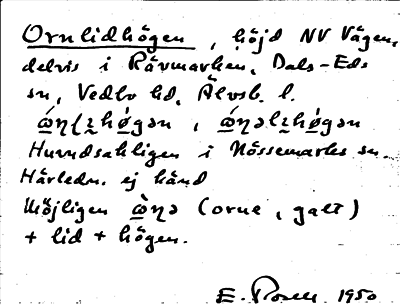 Ornlidhögen, höjd NV Vägen,
delvis i Rävmarken, Dals-Eds
sn, Vedbo hd, Älvsb. l.
Huvudsakligen i Nössemarks sn.
Härledn. ej känd
Möjligen (orne, galt)
+ lid + högen.
E. 1950